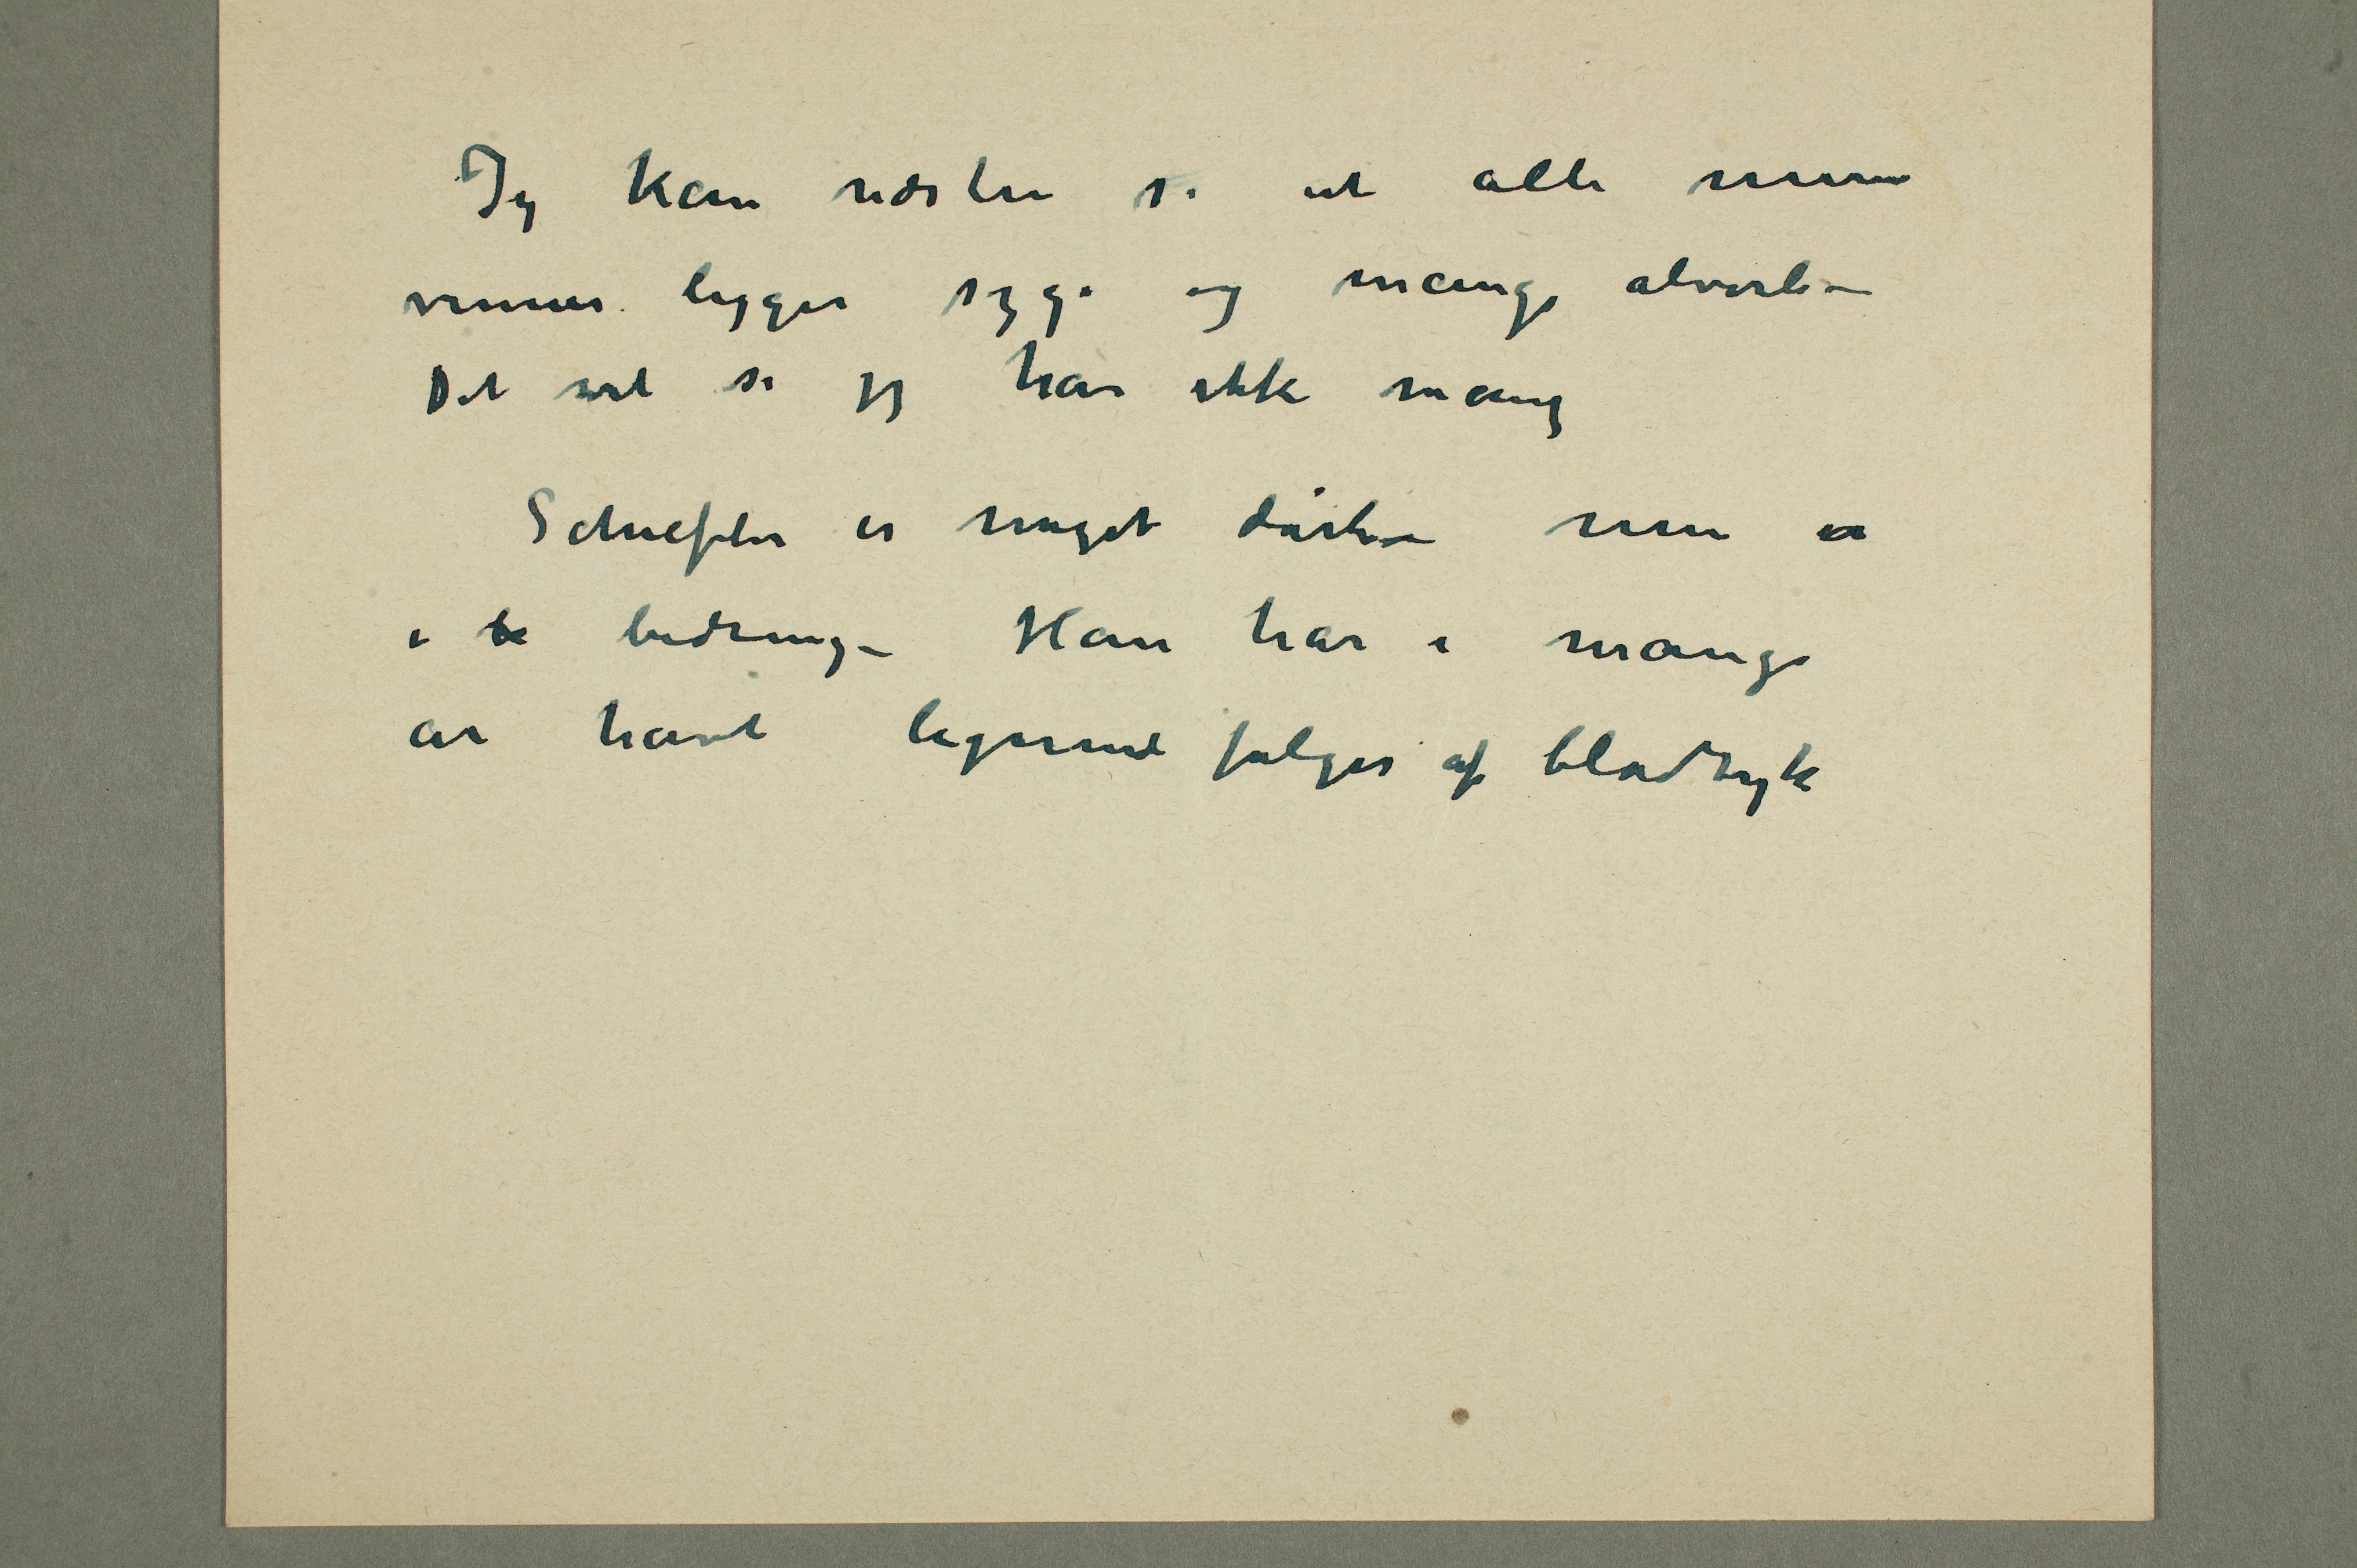 Jeg kan næsten si at alle mine
venner ligger syge og mange alvorlig –
Det vil si jeg har ikke mang
Schiefler er meget dårlig – men er
i be bedring – Han har i mange
år havt lignende følger af blodtryk